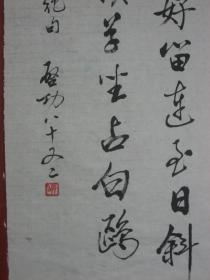 好留連至日斜
草坐占白鷗
絶句 啓功八十又二